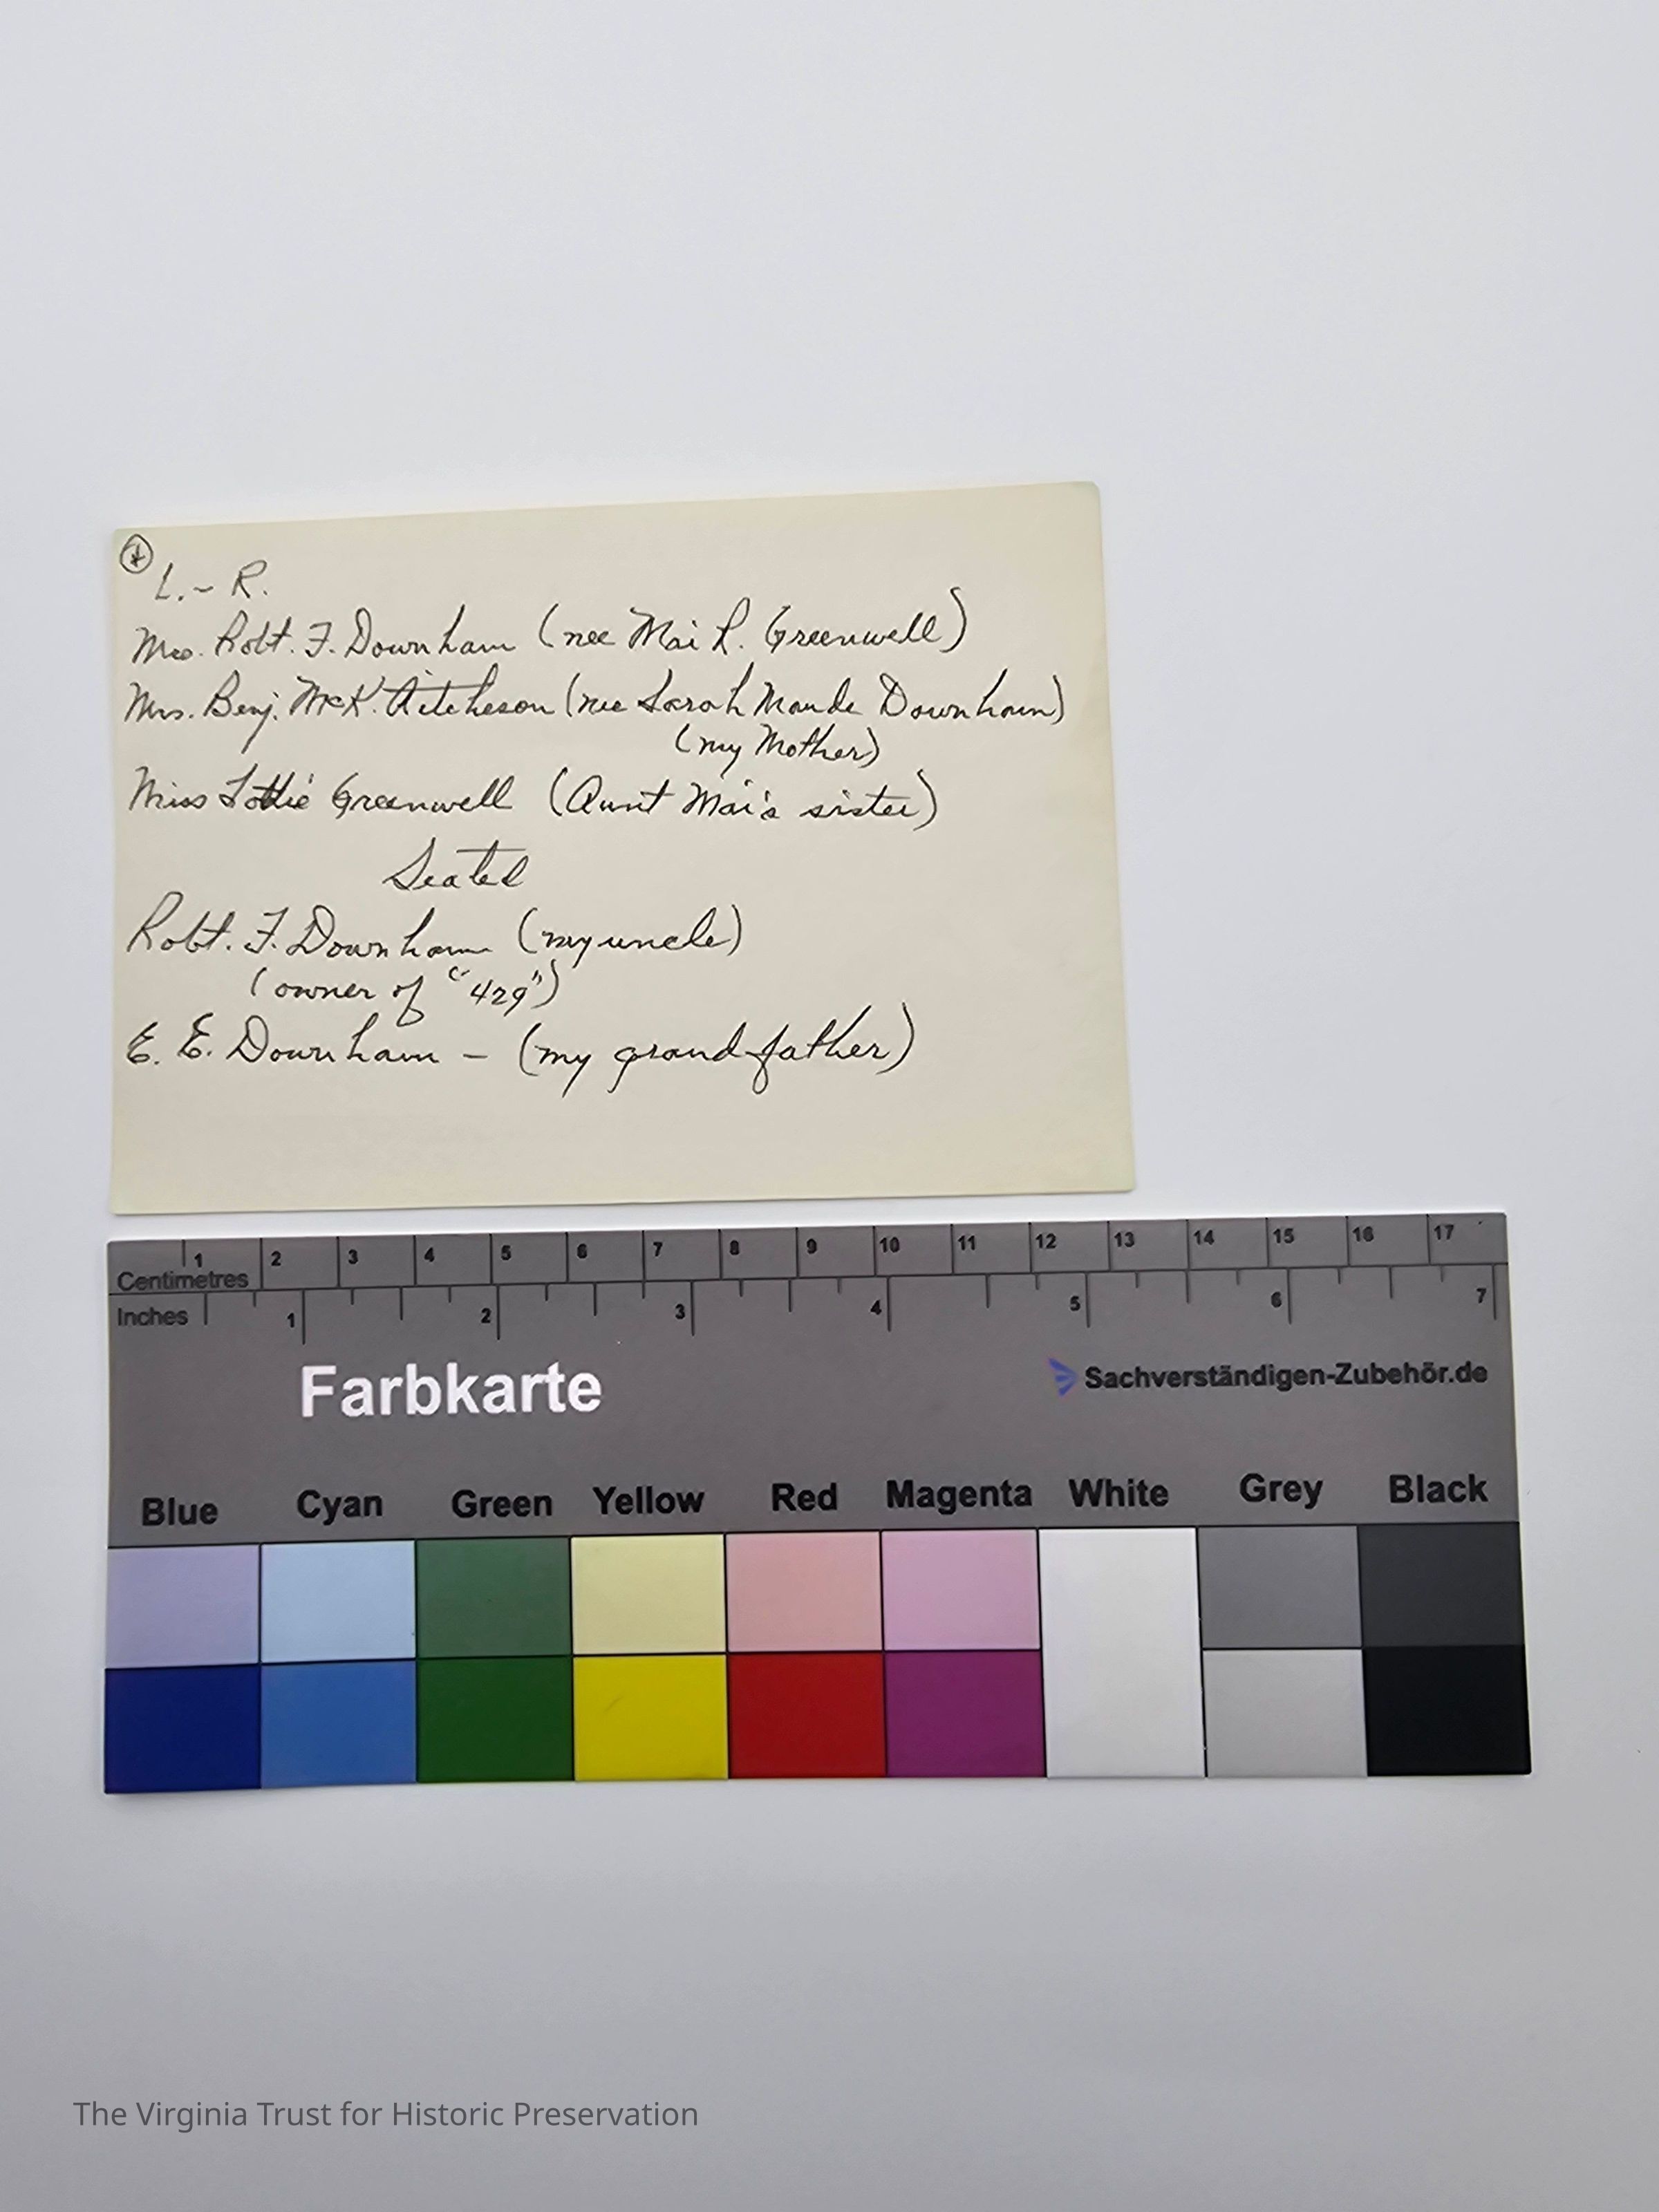 L. - R.
Mrs. Robt. F. Downham (nee Mai R. Greenwell)
Mrs. Benj. McK. Aitcheson (nee Sarah Maude Downham)
(my Mother)
Miss Lottie Greenwell (Aunt Mai's sister)
Seated
Robt. F. Downham (my uncle)
(owner of "429")
E. E. Downham - (my grandfather)
1 2 3 4 5 6 7 8 9 10 11 12 13 14 15 16 17
Centimetres
Inches 1 2 3 4 5 6 7
Farbkarte
Sachverständigen-Zubehör.de
Blue Cyan Green Yellow Red Magenta White Grey Black
The Virginia Trust for Historic Preservation